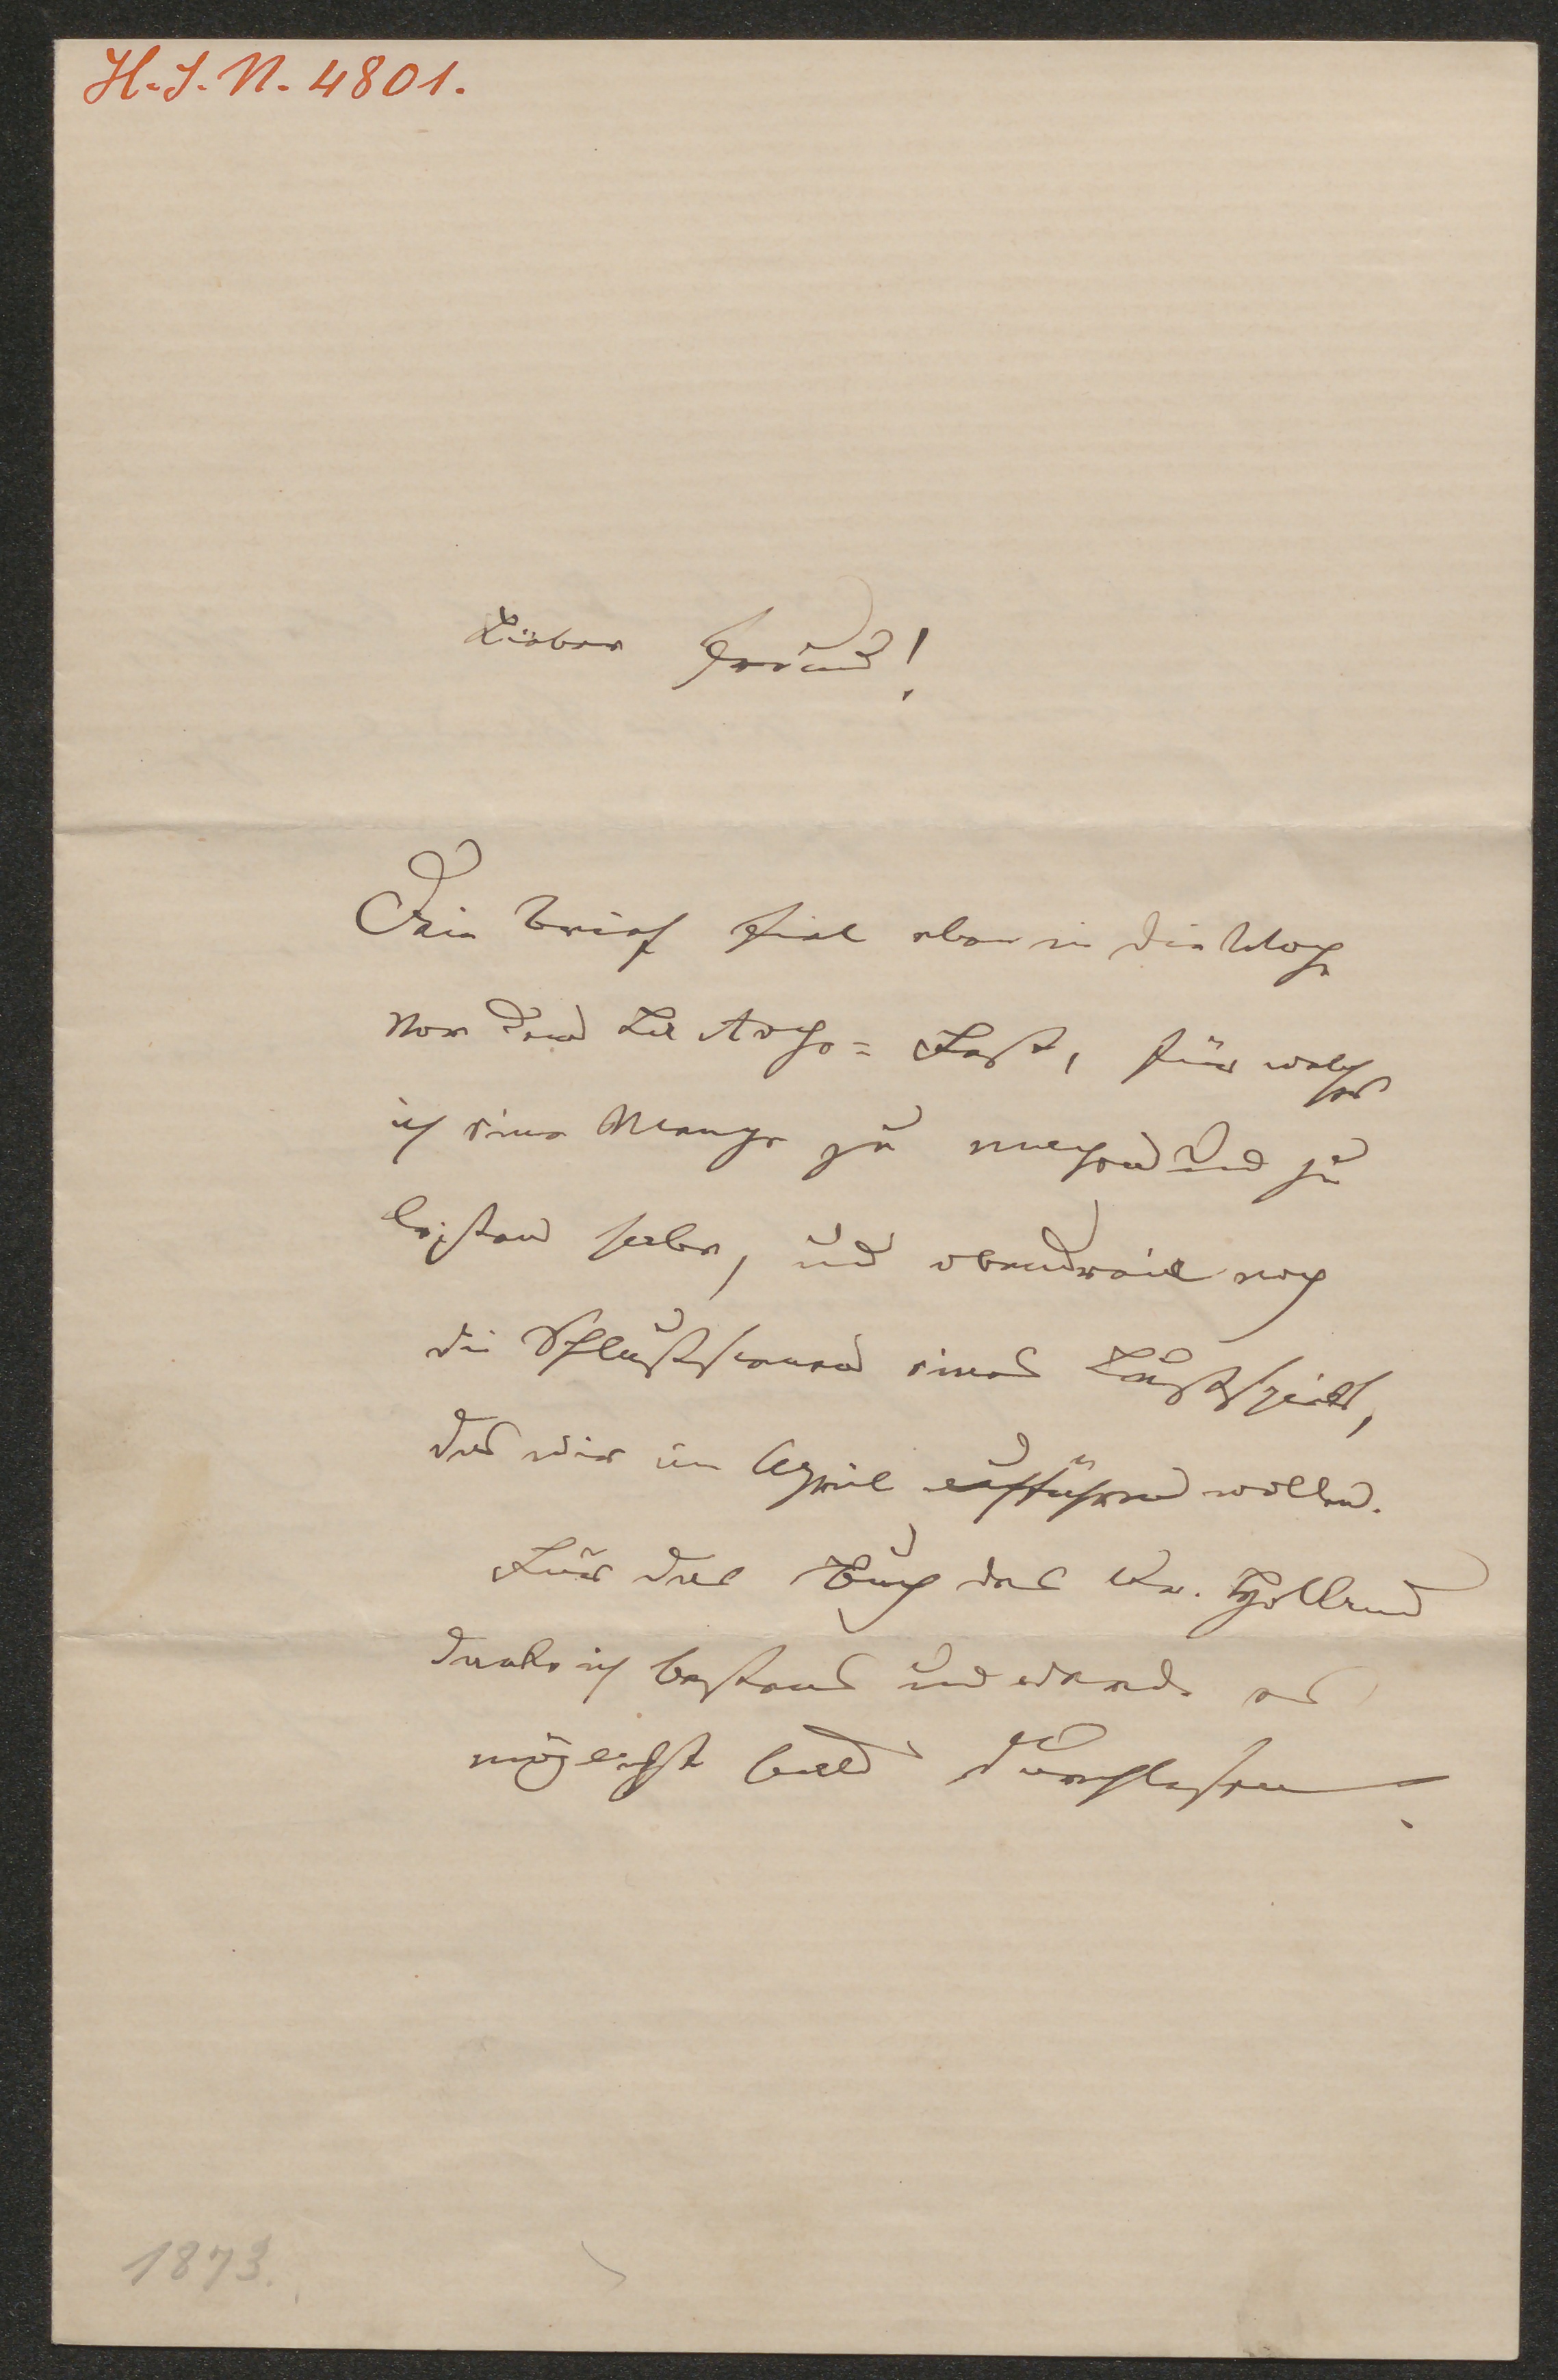 H. J. N. 4801.
Lieber Freund!
Dein Brief fiel eben in die Woche
vor dem La Roche-Fest, für welches
ich eine Menge zu machen und zu
leisten habe, und obendrein noch
die Schlußscenen eines Lustspiels,
das wir im April aufführen wollen.
Für das Buch des Dr. Holland
danke ich bestens und werde es
möglichst bald durchlesen.
1873.